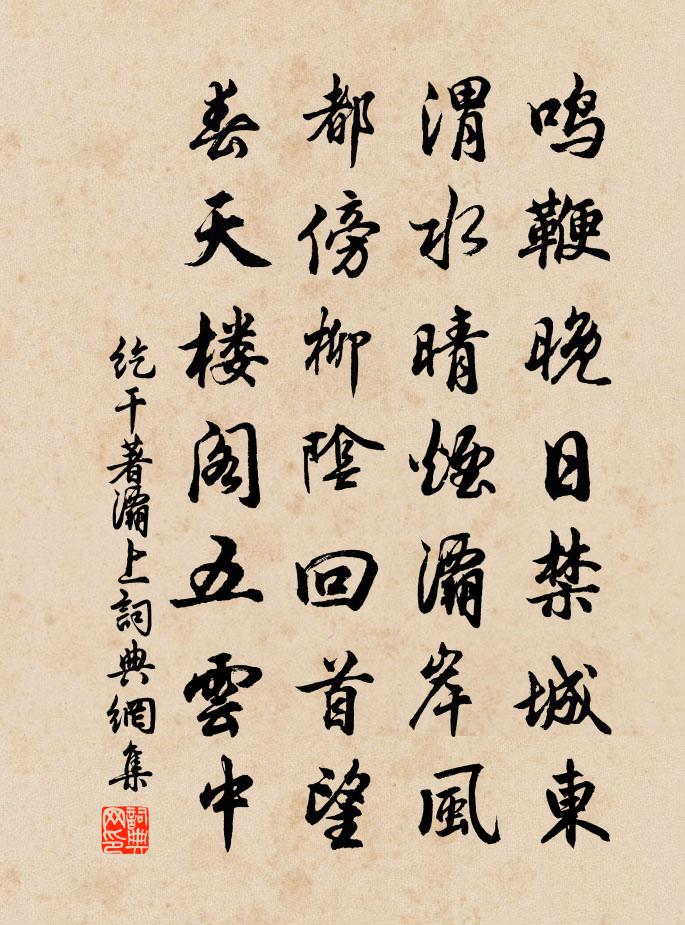 鸣鞭晚日禁城東
渭水晴煙灞岸風
都傍柳陰回首望
春天楼阁五雲中
纥干著灞上詞典網集
詞典网印